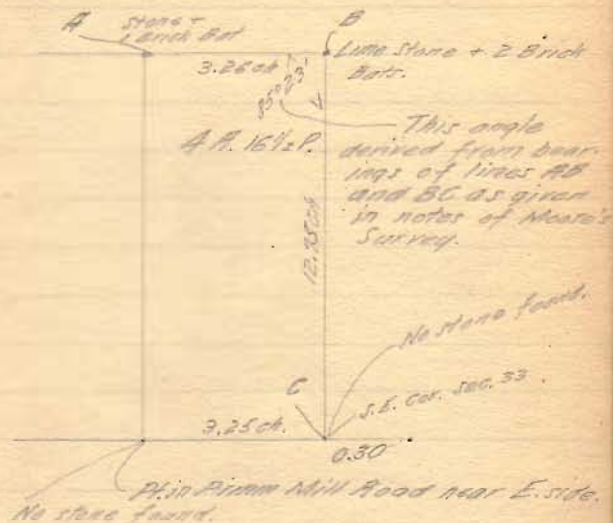 A
Stone +
1 Brick Bat
B
Lime Stone + 2 Brick
Bats.
3.26 ch
85° 23'
4 A. 16 1/2 P.
This angle
derived from bear-
ings of lines AB
and BC as given
in notes of Moore's
Survey.
12.75 ch
No stone found.
C
S.E. Cor. Sec. 33
3.25 ch.
0.30
Pt. in Mill Road near E. side.
No stone found.